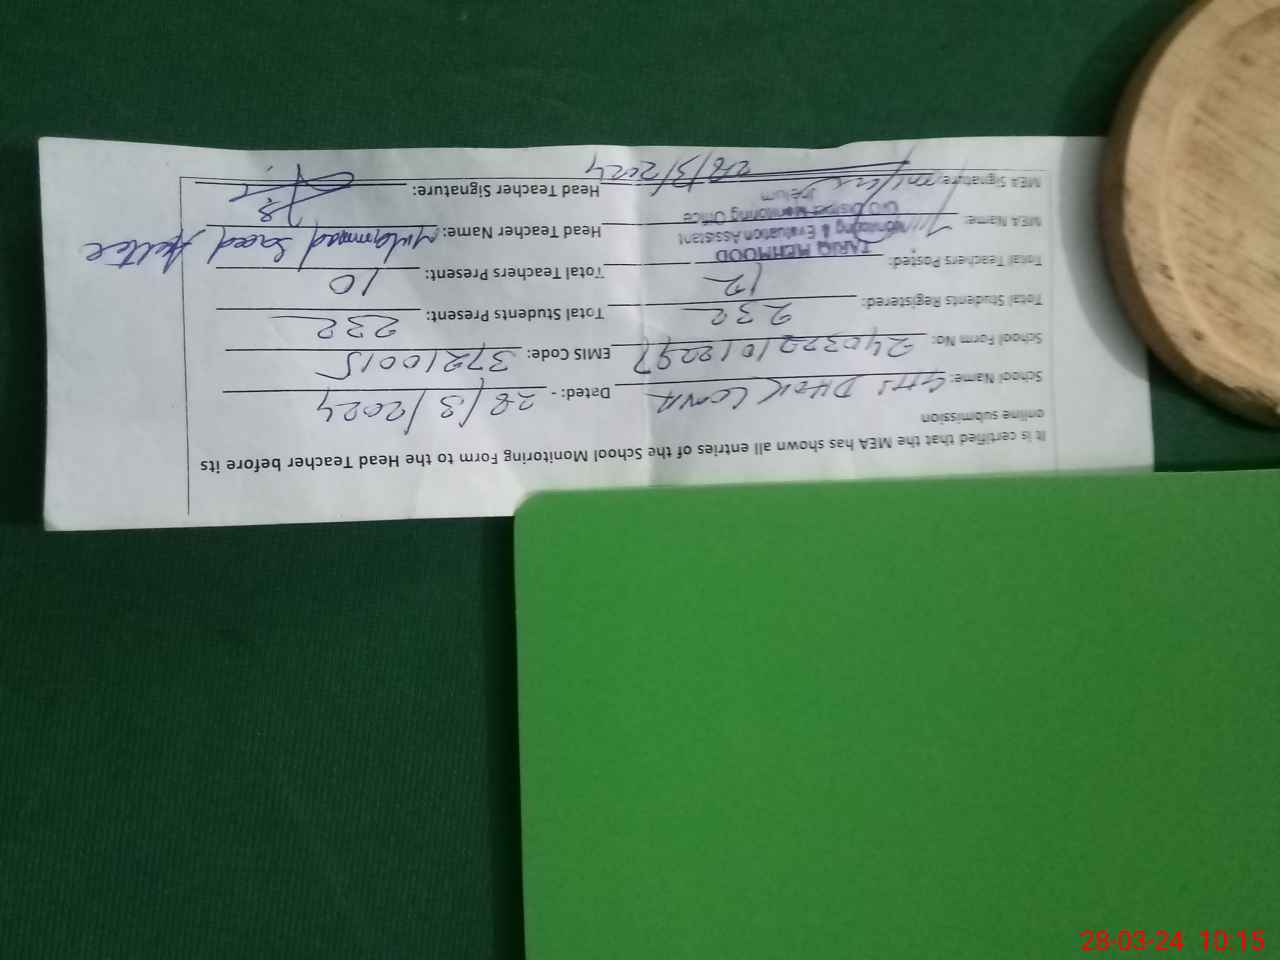 It is certified that the MEA has shown all entries of the School Monitoring Form to the Head Teacher before its
online submission
School Name: GHS DHOK LONA Dated: - 28/3/2024
School Form No: EMIS Code: 37210015
Total Students Registered: 232 Total Students Present: 232
Total Teachers Posted: 12 Total Teachers Present: 10
MEA Name: TARIQ MEHMOOD Head Teacher Name: Muhammad Saeed Akhtar
Monitoring & Evaluation Assistant
O/O District Monitoring Office
Jhelum
MEA Signature: Head Teacher Signature:
28/3/2024
28-03-24 10:15